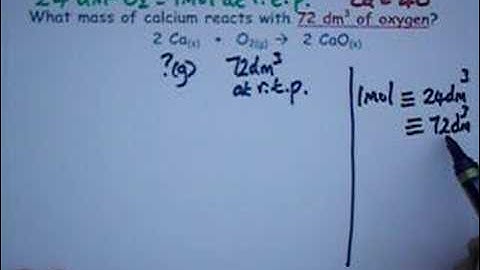 24 dm³ O₂ = 1mol at r.t.p. Ca = 40
What mass of calcium reacts with 72 dm³ of oxygen?
2 Ca(s) + O₂(g) → 2 CaO(s)
?(g) 72dm³
at r.t.p.
1mol ≡ 24dm³
≡ 72dm³